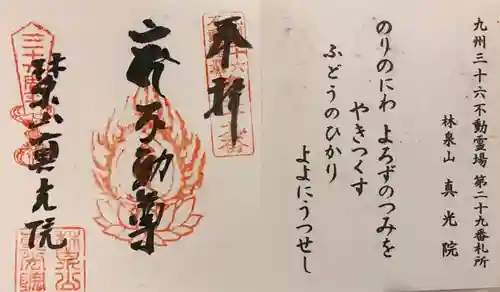 九州三十六不動霊場 第二十九番札所
林泉山 真光院
のりのにわ よろずのつみを
やきつくす
ふどうのひかり
よよにうつせし
奉拝
不動尊
林泉山真光院